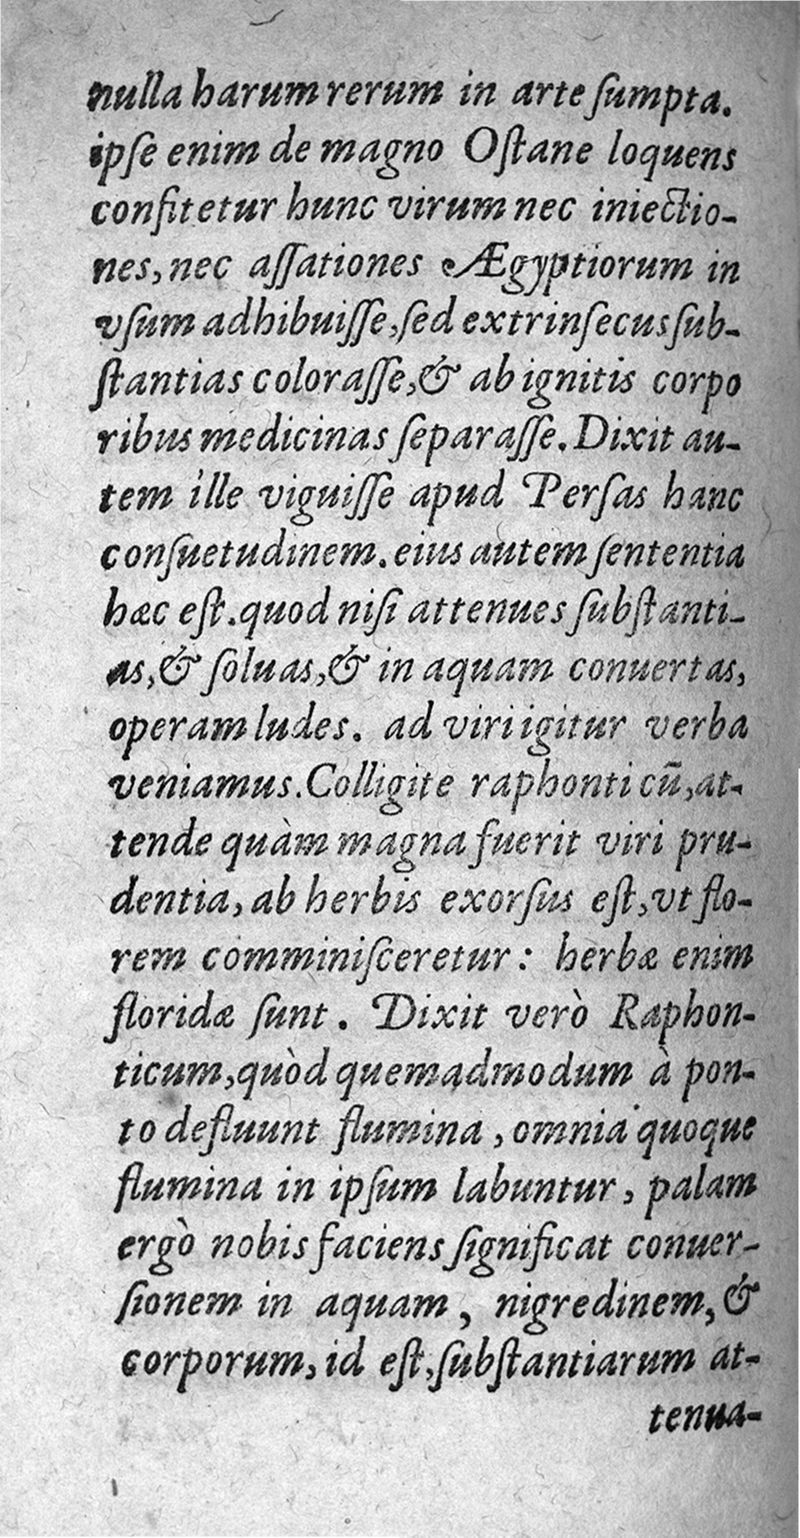 nulla harum rerum in arte ſumpta.
ipſe enim de magno Oſtane loquens
confitetur hunc virum nec iniectio-
nes, nec aſſationes Ægyptiorum in
vſum adhibuiſſe, ſed extrinſecus ſub-
ſtantias coloraſſe, & ab ignitis corpo
ribus medicinas ſeparaſſe. Dixit au-
tem ille viguiſſe apud Perſas hanc
conſuetudinem. eius autem ſententia
hæc eſt. quod niſi attenues ſubſtanti-
as, & ſoluas, & in aquam conuertas,
operam ludes. ad viri igitur verba
veniamus. Colligite raphonticū, at-
tende quàm magna fuerit viri pru-
dentia, ab herbis exorſus eſt, vt flo-
rem comminiſceretur: herbæ enim
floridæ ſunt. Dixit verò Raphon-
ticum, quòd quemadmodum à pon-
to defluunt flumina, omnia quoque
flumina in ipſum labuntur, palam
ergò nobis faciens ſignificat conuer-
ſionem in aquam, nigredinem, &
corporum, id eſt, ſubſtantiarum at-
tenua-